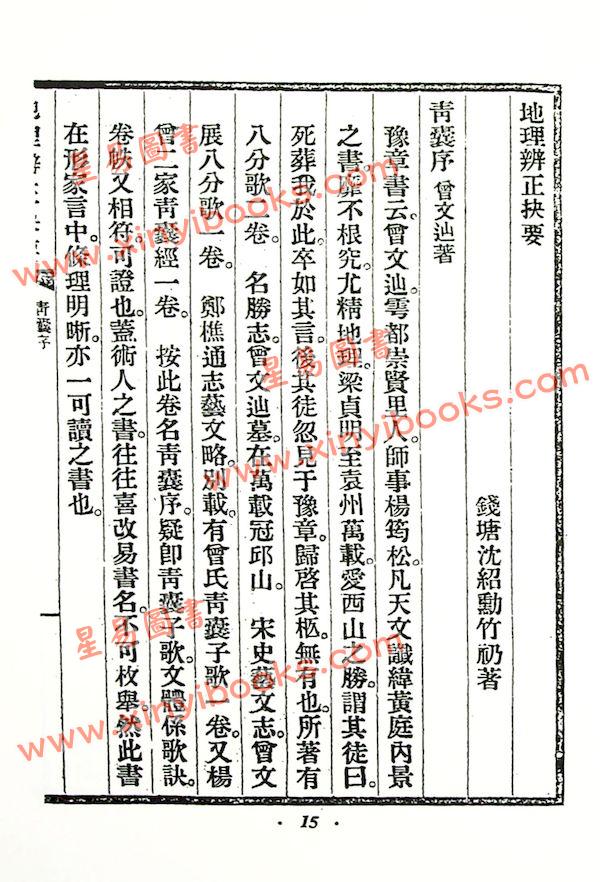 地理辨正抉要
錢塘沈紹勳竹礽著
靑囊序 曾文辿著
豫章書云。曾文辿。雩都崇賢里人。師事楊筠松。凡天文讖緯黃庭內景
之書。靡不根究。尤精地理。梁貞明至袁州萬載。愛西山之勝。謂其徒曰。
死葬我於此。卒如其言。後其徒忽見于豫章。歸啓其柩。無有也。所著有
八分歌一卷。 名勝志。曾文辿墓。在萬載冠邱山。 宋史藝文志。曾文
展八分歌一卷。 鄭樵通志藝文略。別載有曾氏靑囊子歌一卷。又楊
曾二家靑囊經一卷。 按此卷名靑囊序。疑卽靑囊子歌。文體係歌訣。
卷帙又相符。可證也。蓋術人之書。往往喜改易書名。不可枚舉。然此書
在形家言中。條理明晰。亦一可讀之書也。
靑囊序
一
· 15 ·
星易圖書
www.xinyibooks.com
星易圖書
www.xinyibooks.com
星易圖書
www.xinyibooks.com